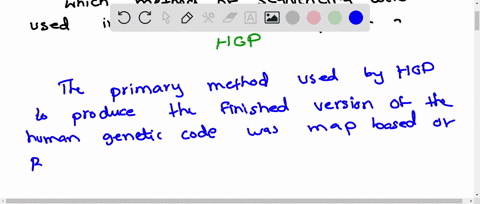 which
used
HGP
The primary method used by HGP
to produce the finished version of the
human genetic code was map based or